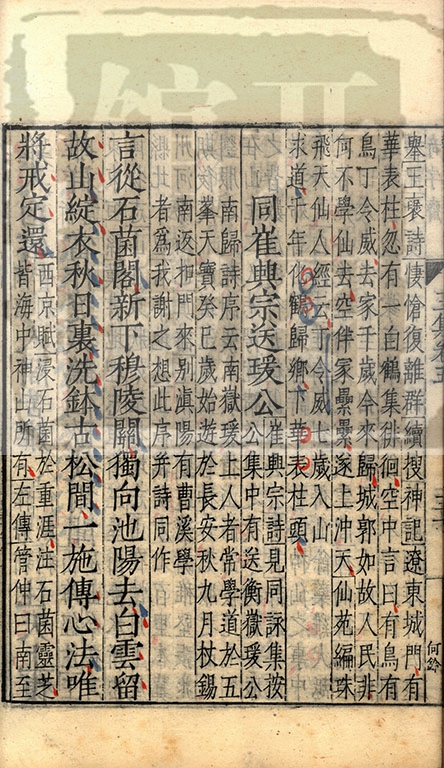 舉王褒詩悽愴復離群續搜神記遼東城門有
華表柱忽有一白鶴集徘徊空中言曰有鳥有
鳥丁令威去家千歲今來歸城郭如故人民非
何不學仙去空伴冢纍纍遂上沖天仙苑編珠
飛天仙人經云丁令威七歲入山
求道千年化鶴歸鄉下華表柱頭
同崔興宗送瑗公
崔興宗詩見同詠集按
公集中有送衡嶽瑗公
南歸詩序云南嶽瑗上人者常學道於五
峯天寶癸巳歲始遊於長安秋九月杖錫
南返扣門來別滇陽有曹溪學
者爲我謝之想此序并詩同作
言從石菌閣新下穆陵關獨向池陽去白雲留
故山綻衣秋日裏洗鉢古松間一施傳心法唯
將戒定還
西京賦浸石菌於重涯注石菌靈芝
皆海中神山所有左傳管仲曰南至